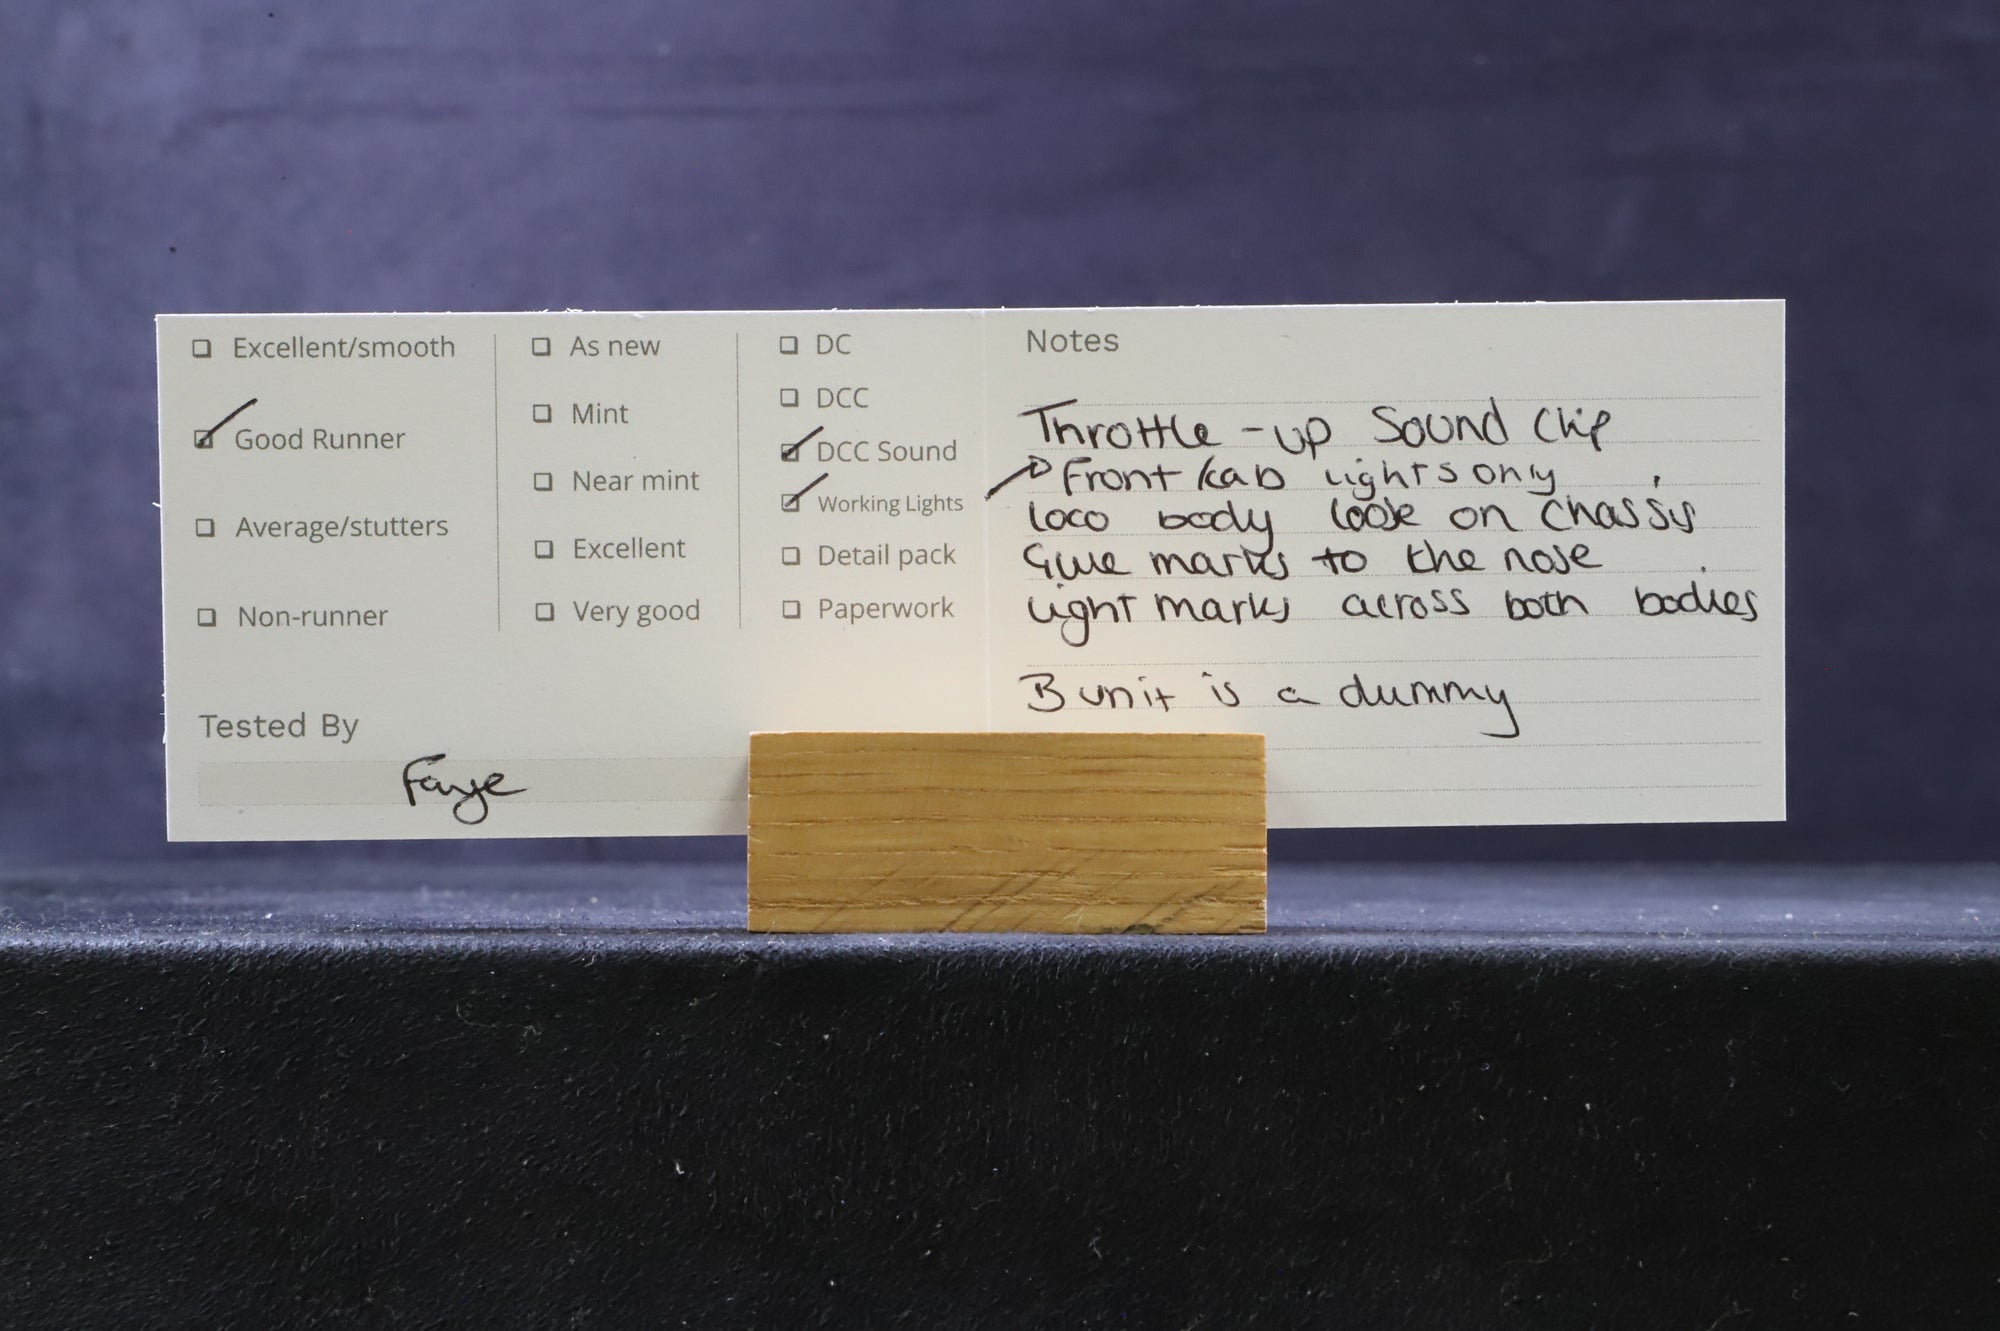 Excellent/smooth
Good Runner
Average/stutters
Non-runner
As new
Mint
Near mint
Excellent
Very good
DC
DCC
DCC Sound
Working Lights
Detail pack
Paperwork
Tested By
Faye
Notes
Throttle-up Sound Chip
Front/cab lights only
loco body loose on chassis
Glue marks to the nose
light marks across both bodies
B unit is a dummy